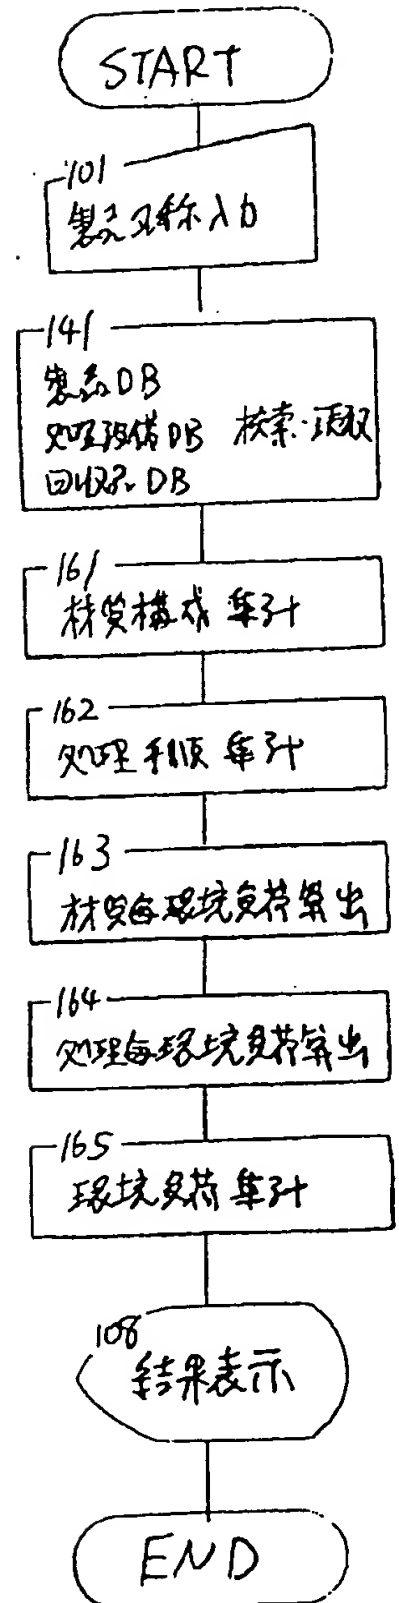 START
101
製品名称入力
141
製品DB
処理設備DB 検索・読取
回収品DB
161
材質構成 集計
162
処理手順 集計
163
材質毎環境負荷算出
164
処理毎環境負荷算出
165
環境負荷 集計
108
結果表示
END